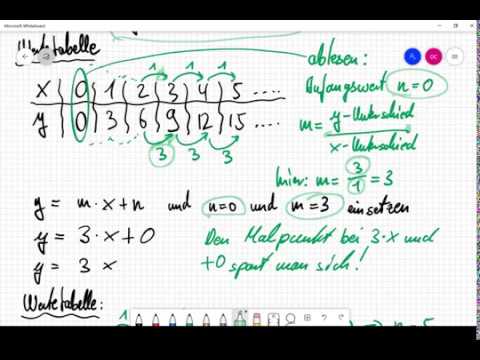 Microsoft Whiteboard
Wertetabelle
ablesen:
x | 0 | 1 | 2 | 3 | 4 | 5 ....
y | 0 | 3 | 6 | 9 | 12 | 15 ....
1 1 1
3 3 3
Anfangswert n=0
m = y-Unterschied / x-Unterschied
hier: m = 3/1 = 3
y = m·x+n und n=0 und m=3 einsetzen
y = 3·x+0
y = 3 x
Den Malpunkt bei 3·x und
+0 spart man sich!
Wertetabelle:
1
n=5